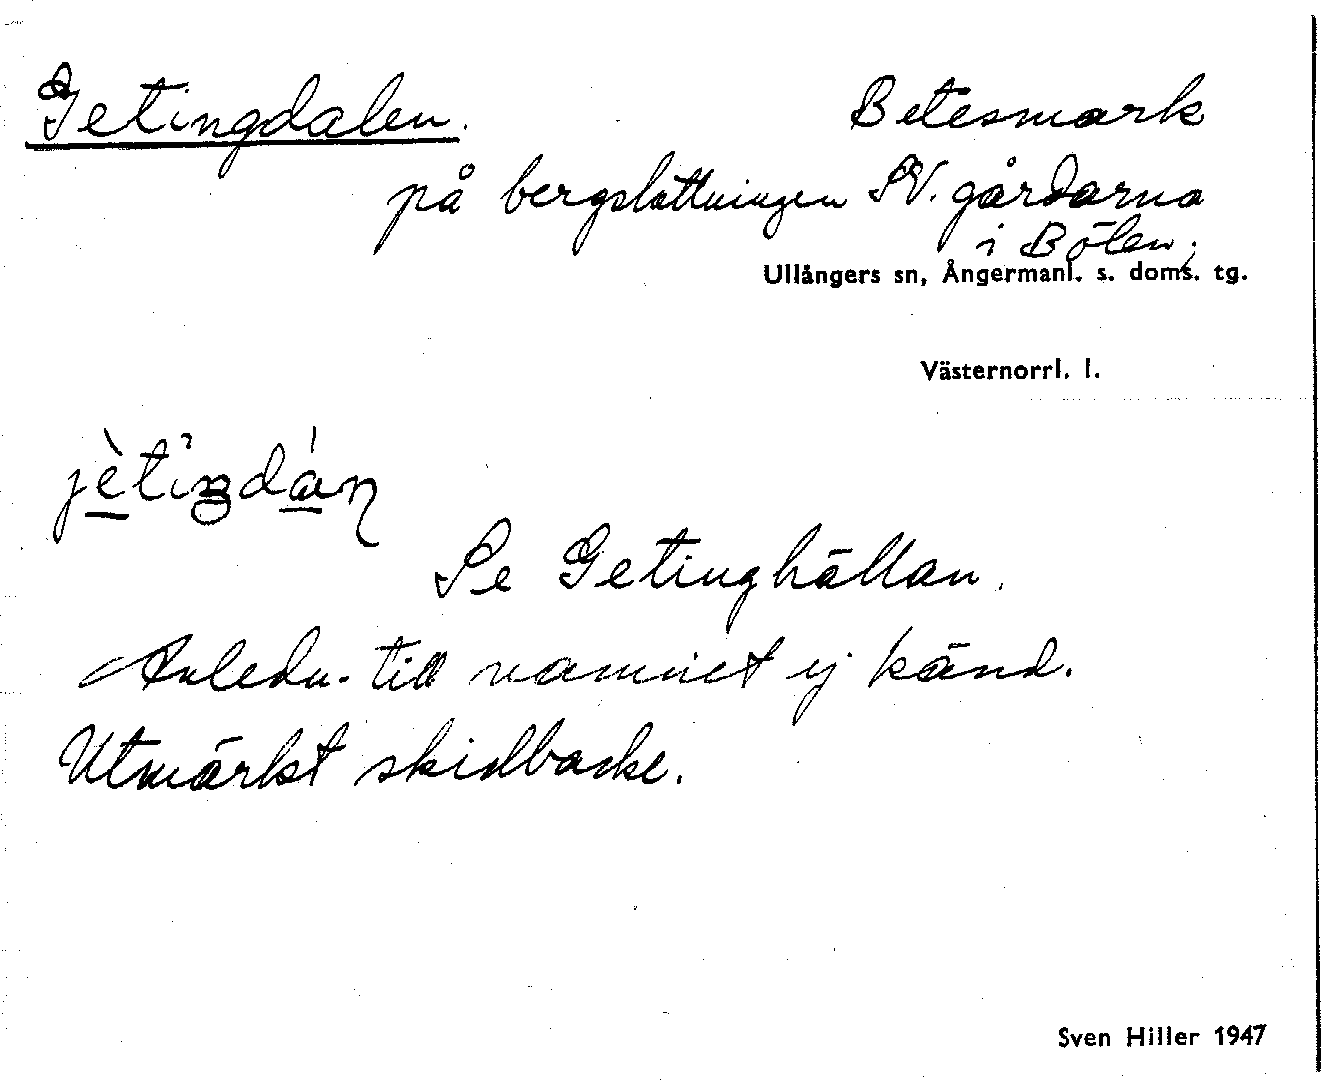 Getingdalen.
Betesmark
på bergslättningen SV. gårdarna
i Bölen,
Ullångers sn, Ångermanl. s. doms. tg.
Västernorrl. l.
Se Getinghällan.
Anledn. till namnet ej känd.
Utmärkt skidbacke.
Sven Hiller 1947